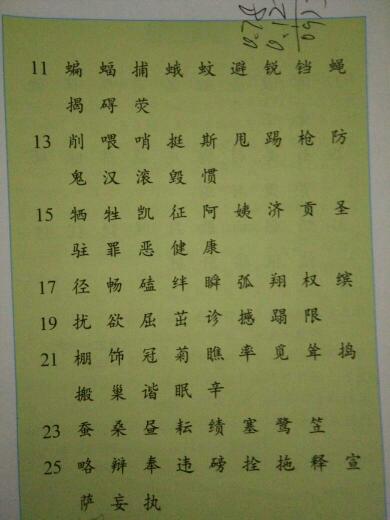 0.78
0.12
11 蝙 蝠 捕 蛾 蚊 避 锐 铛 蝇
揭 碍 荧
13 削 喂 哨 挺 斯 甩 踢 枪 防
鬼 汉 滚 毁 惯
15 牺 牲 凯 征 阿 姨 济 贡 圣
驻 罪 恶 健 康
17 径 畅 磕 绊 瞬 弧 翔 权 缤
19 扰 欲 屈 茁 诊 撼 蹋 限
21 棚 饰 冠 菊 瞧 率 觅 耸 捣
搬 巢 谐 眠 辛
23 蚕 桑 昼 耘 绩 塞 鹭 笠
25 略 辩 奉 违 磅 拴 拖 释 宣
萨 妄 执